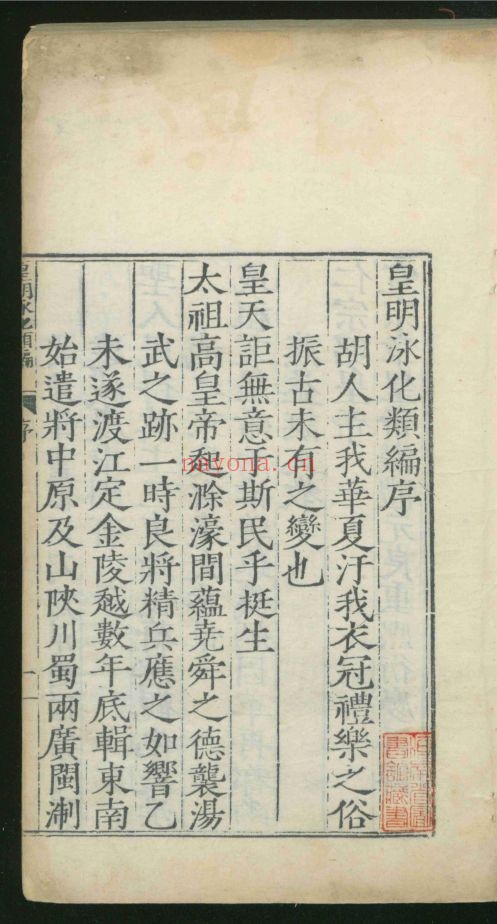 皇明泳化類編序
胡人主我華夏汙我衣冠禮樂之俗
振古未有之變也
皇天詎無意于斯民乎挺生
太祖高皇帝起滁濠間蘊堯舜之德襲湯
武之跡一時良將精兵應之如響乙
未遂渡江定金陵越數年底輯東南
始遣將中原及山陝川蜀兩廣閩淛
皇明泳化類編
序
一
nayona.cn